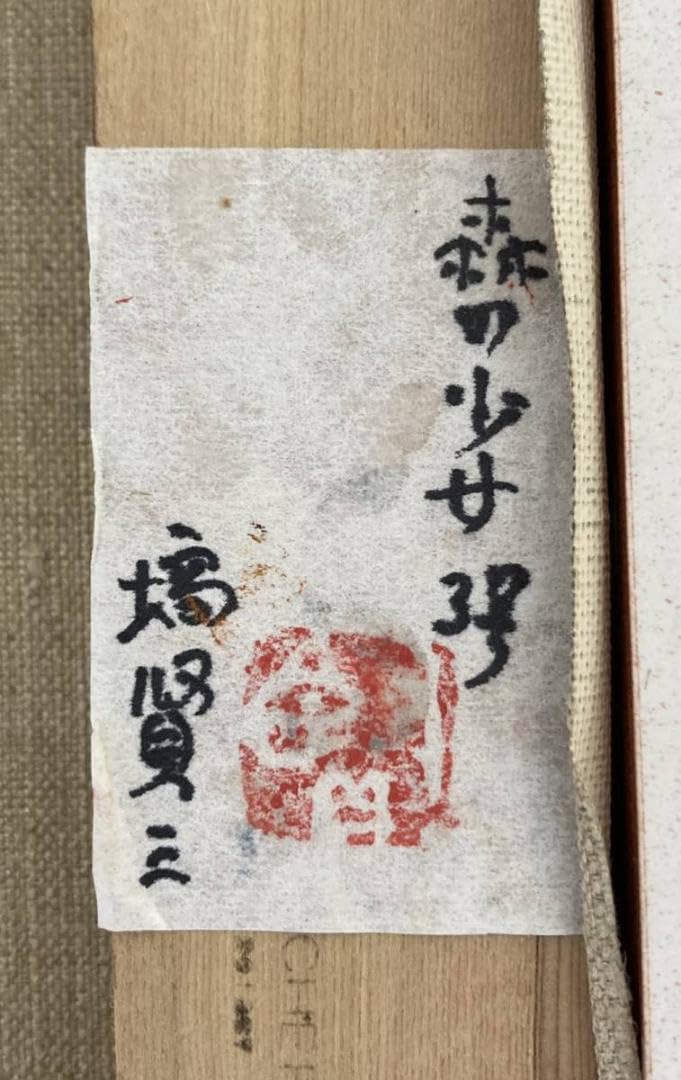 森の少女 3号
塙賢三